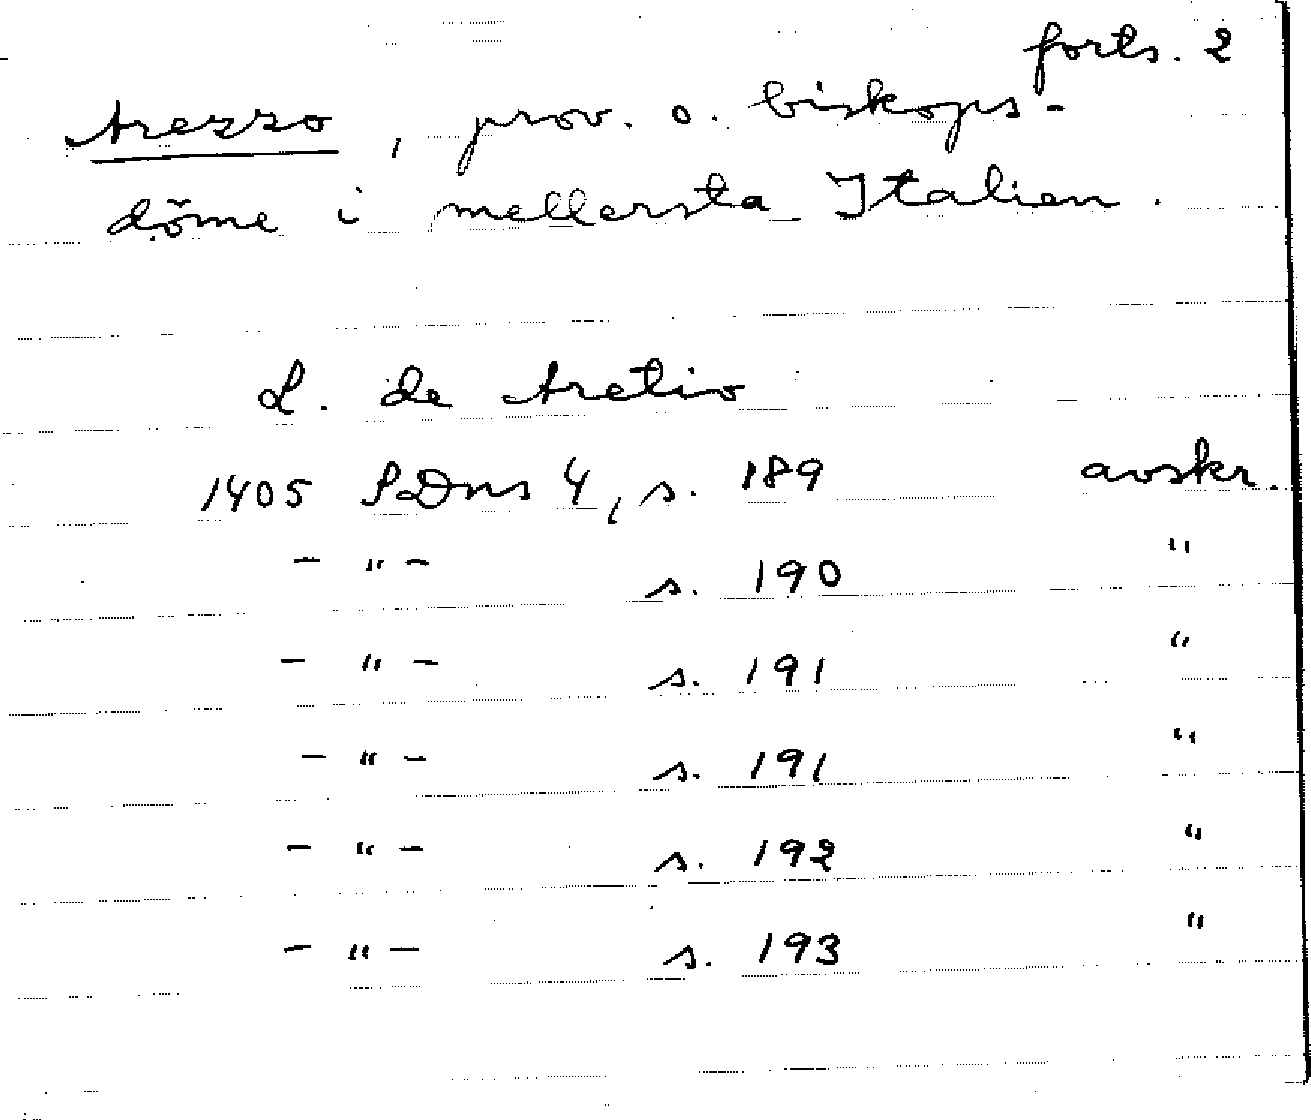 forts. 2
Arezzo, prov. o. biskops-
döme i mellersta Italien.
L. de Aretio
1405 SDns 4, s. 189 avskr.
- " - s. 190 "
- " - s. 191 "
- " - s. 191 "
- " - s. 192 "
- " - s. 193 "